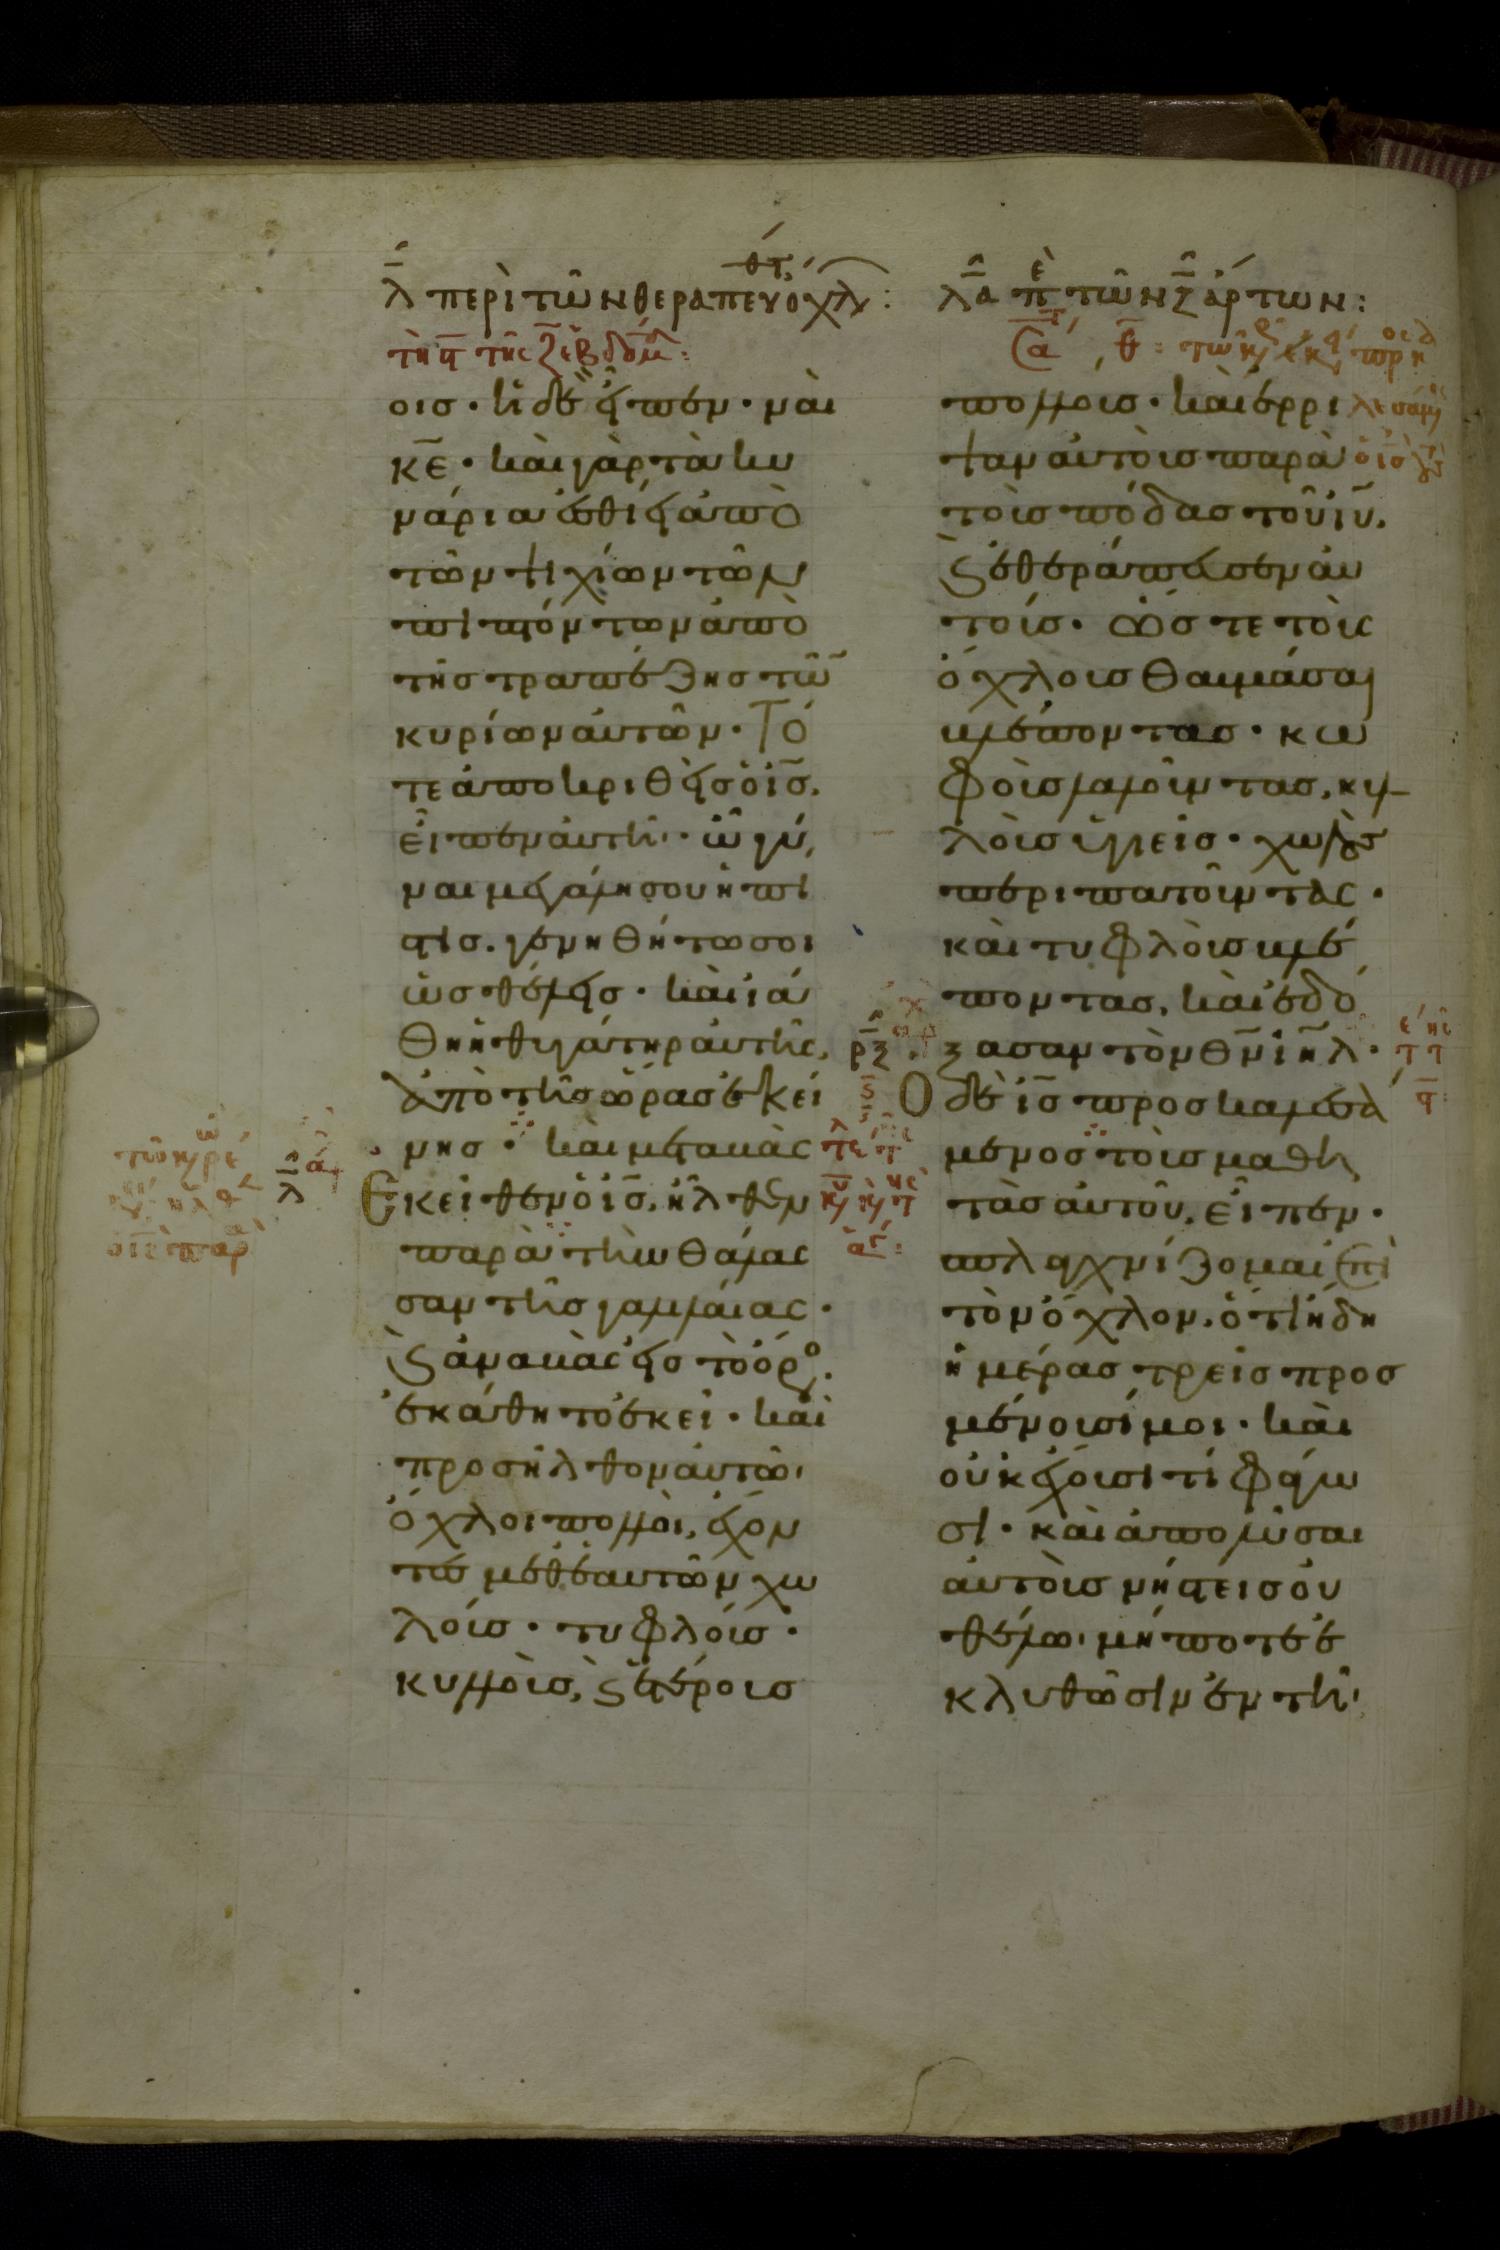 λ περὶ τῶν θεραπευθέντ ὄχλ :
τῇ ϛ τῆς ζ ἑβδομ :
οισ · ἡ δὲ εἶπεν · ναὶ
κ̅ε̅ · καὶ γὰρ τὰ κυ
νάρια ἐσθίει ἀπὸ
τῶν ψιχίων τῶν
πιπτόντων ἀπὸ
τῆσ τραπέζησ τῶ̅
κυρίων αὐτῶν · Τό
τε ἀποκριθεὶσ ὁ ι̅σ̅.
εἶπεν αὐτῆ · ὦ γύ
ναι μεγάλη σου ἡ πί
στισ. γενηθήτω σοι
ὡσ θέλεισ · καὶ ἰά
θη ἡ θυγάτηρ αὐτῆς,
ἀπὸ τῆσ ὥρασ ἐκεί
νησ · καὶ μεταβὰς
Ἐκεῖθεν ὁ ι̅σ̅. ἦλθεν
παρὰ τὴν θάλασ
σαν τῆσ γαλιλαίας ·
ϗ ἀναβὰς εἰσ τὸ ὄρο.
ἐκάθητο ἐκεῖ · καὶ
προσῆλθον αὐτῶ
ὄχλοι πολλοὶ, ἔχον
τεσ μεθ ἑαυτῶν χω
λούσ · τυφλούσ ·
κυλλοὺσ, ϗ ἑτέρουσ
λα π τῶν ζ ἄρτων :
πολλουσ · καὶ ἔρρι
ψαν αὐτοὺσ παρὰ
τοὺσ πόδασ τοῦ ι̅υ̅.
ϗ ἐθεράπευσεν αὐ
τούσ · Ὥστε τοὺς
ὄχλουσ θαυμάσαι
βλέποντασ · κω
φοὺσ λαλοῦντασ, κυλ
λοὺσ ὑγιεῖσ · χωλοὺσ
περιπατοῦντας ·
καὶ τυφλοὺσ βλέ
ποντασ, καὶ ἐδό
ξασαν τὸν θ̅ν̅ ι̅η̅λ̅ ·
Ὁ δὲ ι̅σ̅ προσκαλεσά
μενοσ τοὺσ μαθη
τὰσ αὐτοῦ, εἶπεν ·
σπλαγχνίζομαι ἐπὶ
τὸν ὄχλον. ὅτι ἤδη
ἡμέρασ τρεῖσ προσ
μένουσί μοι · καὶ
οὐκ ἔχουσι τί φάγω
σι · καὶ ἀπολῦσαι
αὐτοὺσ νήστεισ οὐ
θέλω, μήποτε ἐ
κλυθῶσιν ἐν τῆ